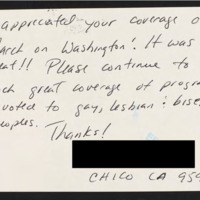 appreciated your coverage o
arch on Washington! It was
eat!! Please continue to
ch great coverage of program
voted to gay, lesbian & bise
eoples. Thanks!
CHICO CA 959